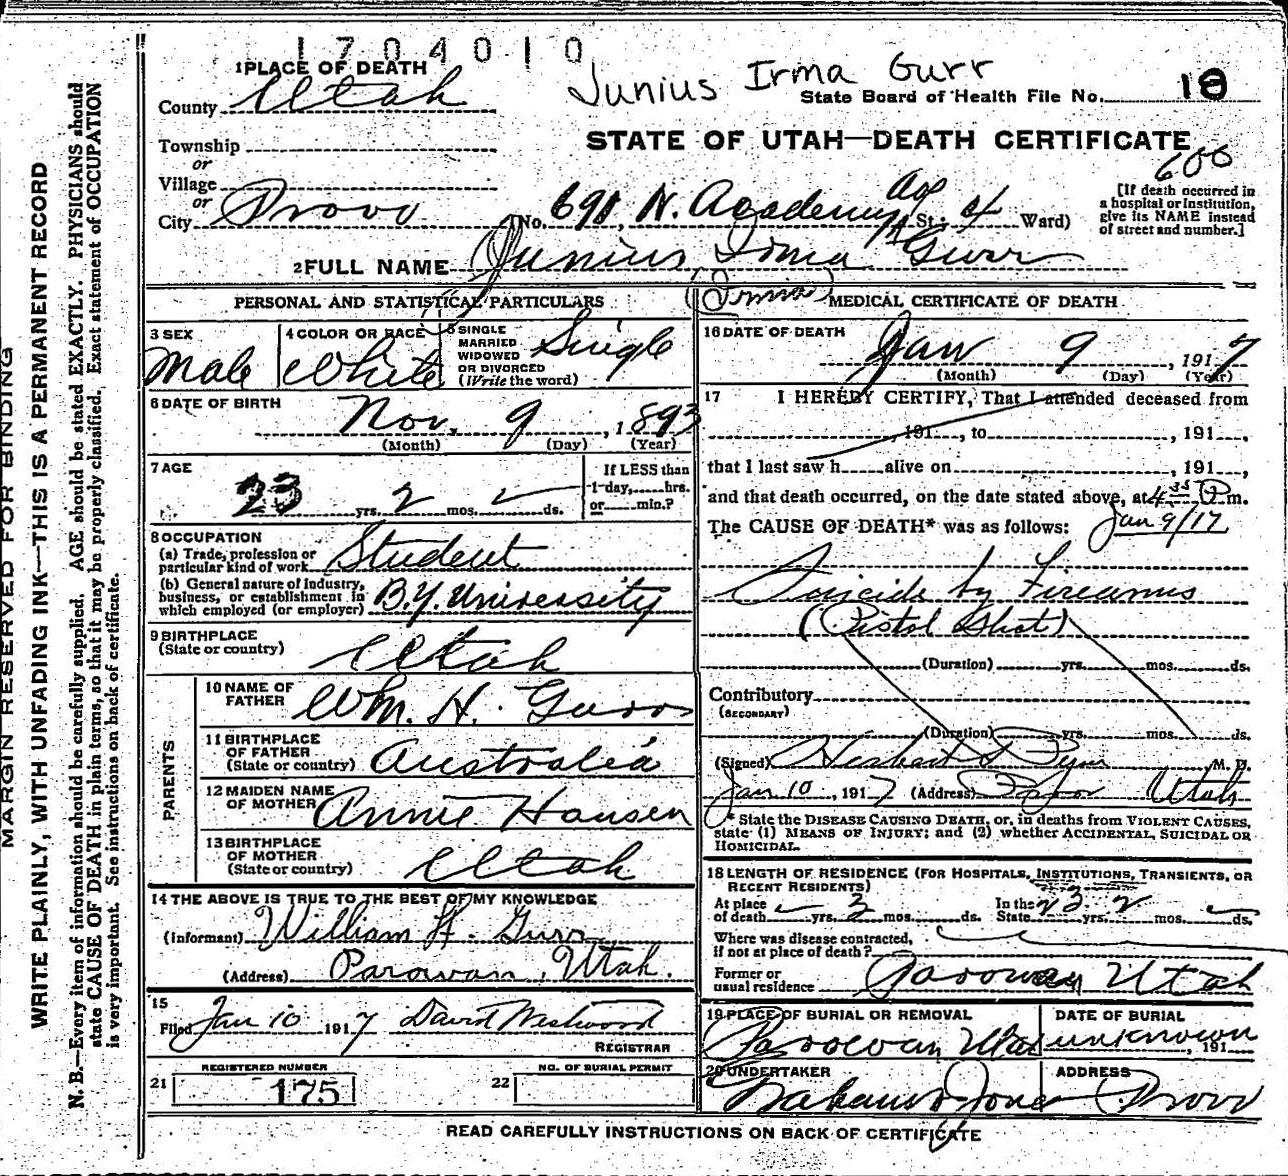 1704010
Junius Irma Gurr
1 PLACE OF DEATH
County Utah
State Board of Health File No. 18
Township
or
Village
or
City Provo
STATE OF UTAH—DEATH CERTIFICATE
600
(No. 690, N. Academy Av St; 4 Ward)
[If death occurred in
a hospital or institution,
give its NAME instead
of street and number.]
2 FULL NAME Junius Irma Gurr
(Irma)
PERSONAL AND STATISTICAL PARTICULARS
3 SEX
Male
4 COLOR OR RACE
White
5 SINGLE
MARRIED
WIDOWED
OR DIVORCED
(Write the word)
Single
6 DATE OF BIRTH
Nov. 9, 1893
(Month) (Day) (Year)
7 AGE
23 yrs. 2 mos. ds.
If LESS than
1 day, hrs.
or min.?
8 OCCUPATION
(a) Trade, profession or
particular kind of work Student
(b) General nature of industry,
business, or establishment in
which employed (or employer) B.Y. University
9 BIRTHPLACE
(State or country) Utah
PARENTS
10 NAME OF
FATHER Wm. H. Gurr
11 BIRTHPLACE
OF FATHER
(State or country) Australia
12 MAIDEN NAME
OF MOTHER Annie Hansen
13 BIRTHPLACE
OF MOTHER
(State or country) Utah
14 THE ABOVE IS TRUE TO THE BEST OF MY KNOWLEDGE
(Informant) William H. Gurr
(Address) Parowan, Utah.
15
Filed Jan 10 1917 David Westwood
REGISTRAR
21 REGISTERED NUMBER
175
22 NO. OF BURIAL PERMIT
MEDICAL CERTIFICATE OF DEATH
16 DATE OF DEATH
Jan 9, 1917
(Month) (Day) (Year)
17 I HEREBY CERTIFY, That I attended deceased from
, 191 , to , 191 ,
that I last saw h alive on , 191 ,
and that death occurred, on the date stated above, at 4 35 P m.
The CAUSE OF DEATH* was as follows: Jan 9/17
Suicide by Firearms
(Pistol Shot)
(Duration) yrs. mos. ds.
Contributory
(SECONDARY)
(Duration) yrs. mos. ds.
(Signed) Herbert S Pyne M. D.
Jan 10, 1917 (Address) Provo Utah
* State the DISEASE CAUSING DEATH, or, in deaths from VIOLENT CAUSES,
state (1) MEANS OF INJURY; and (2) whether ACCIDENTAL, SUICIDAL OR
HOMICIDAL.
18 LENGTH OF RESIDENCE (FOR HOSPITALS, INSTITUTIONS, TRANSIENTS, OR
RECENT RESIDENTS)
At place
of death yrs. 3 mos. ds.
In the
State 23 yrs. 2 mos. ds.
Where was disease contracted,
if not at place of death?
Former or
usual residence Parowan Utah
19 PLACE OF BURIAL OR REMOVAL
Parowan Utah
DATE OF BURIAL
unknown, 191
20 UNDERTAKER
ADDRESS
Provo
READ CAREFULLY INSTRUCTIONS ON BACK OF CERTIFICATE
MARGIN RESERVED FOR BINDING
WRITE PLAINLY, WITH UNFADING INK—THIS IS A PERMANENT RECORD
N. B.—Every item of information should be carefully supplied. AGE should be stated EXACTLY. PHYSICIANS should
state CAUSE OF DEATH in plain terms, so that it may be properly classified. Exact statement of OCCUPATION
is very important. See instructions on back of certificate.